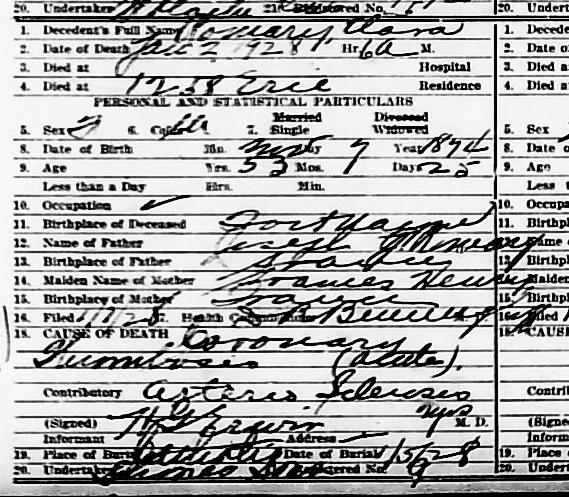 20. Undertaker 21. Registered No. 20. Undert
1. Decedent's Full Name Clara 1. Decede
2. Date of Death Jan 2 1928 Hr. 6 A M. 2. Date o
3. Died at Hospital 3. Died a
4. Died at 1258 Erie Residence 4. Died a
PERSONAL AND STATISTICAL PARTICULARS
Married Divorced
5. Sex F 6. Color 7. Single Widowed 5. Sex
8. Date of Birth Mo. Nov Day 7 Year 1874 8. Date o
9. Age Yrs. 53 Mos. 1 Days 25 9. Age
Less than a Day Hrs. Min. Less t
10. Occupation ✓ 10. Occupa
11. Birthplace of Deceased Fort Wayne 11. Birthpl
12. Name of Father Joseph 12. Name of
13. Birthplace of Father France 13. Birthpl
14. Maiden Name of Mother Frances Henry 14. Maiden
15. Birthplace of Mother France 15. Birthpl
16. Filed 17. Health 16. Filed
18. CAUSE OF DEATH Coronary 18. CAUSE
Thrombosis (acute).
Contributory Arterio Sclerosis Contrib
yrs
(Signed) M. D. (Signed
Informant Address Inform
19. Place of Burial Catholic Date of Burial 1/5/28 19. Place o
20. Undertaker Sons Registered No. 9 20. Undert